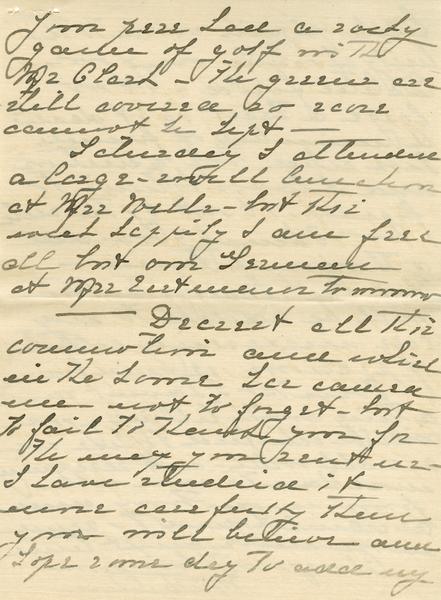 Your pere had a nasty
game of golf with
Mr Clark - The greens are
still covered so score
cannot be kept -
Saturday I attended
a large - small luncheon
at Mrs Mills - but this
week happily I am free
all but one German
at Mrs tomorrow
- Dearest all this
commotion and whirl
in the home has caused
me - not to forget - but
to fail to thank you for
the map you sent me -
I have studied it
more carefully than
you will believe and
hope some day to add my